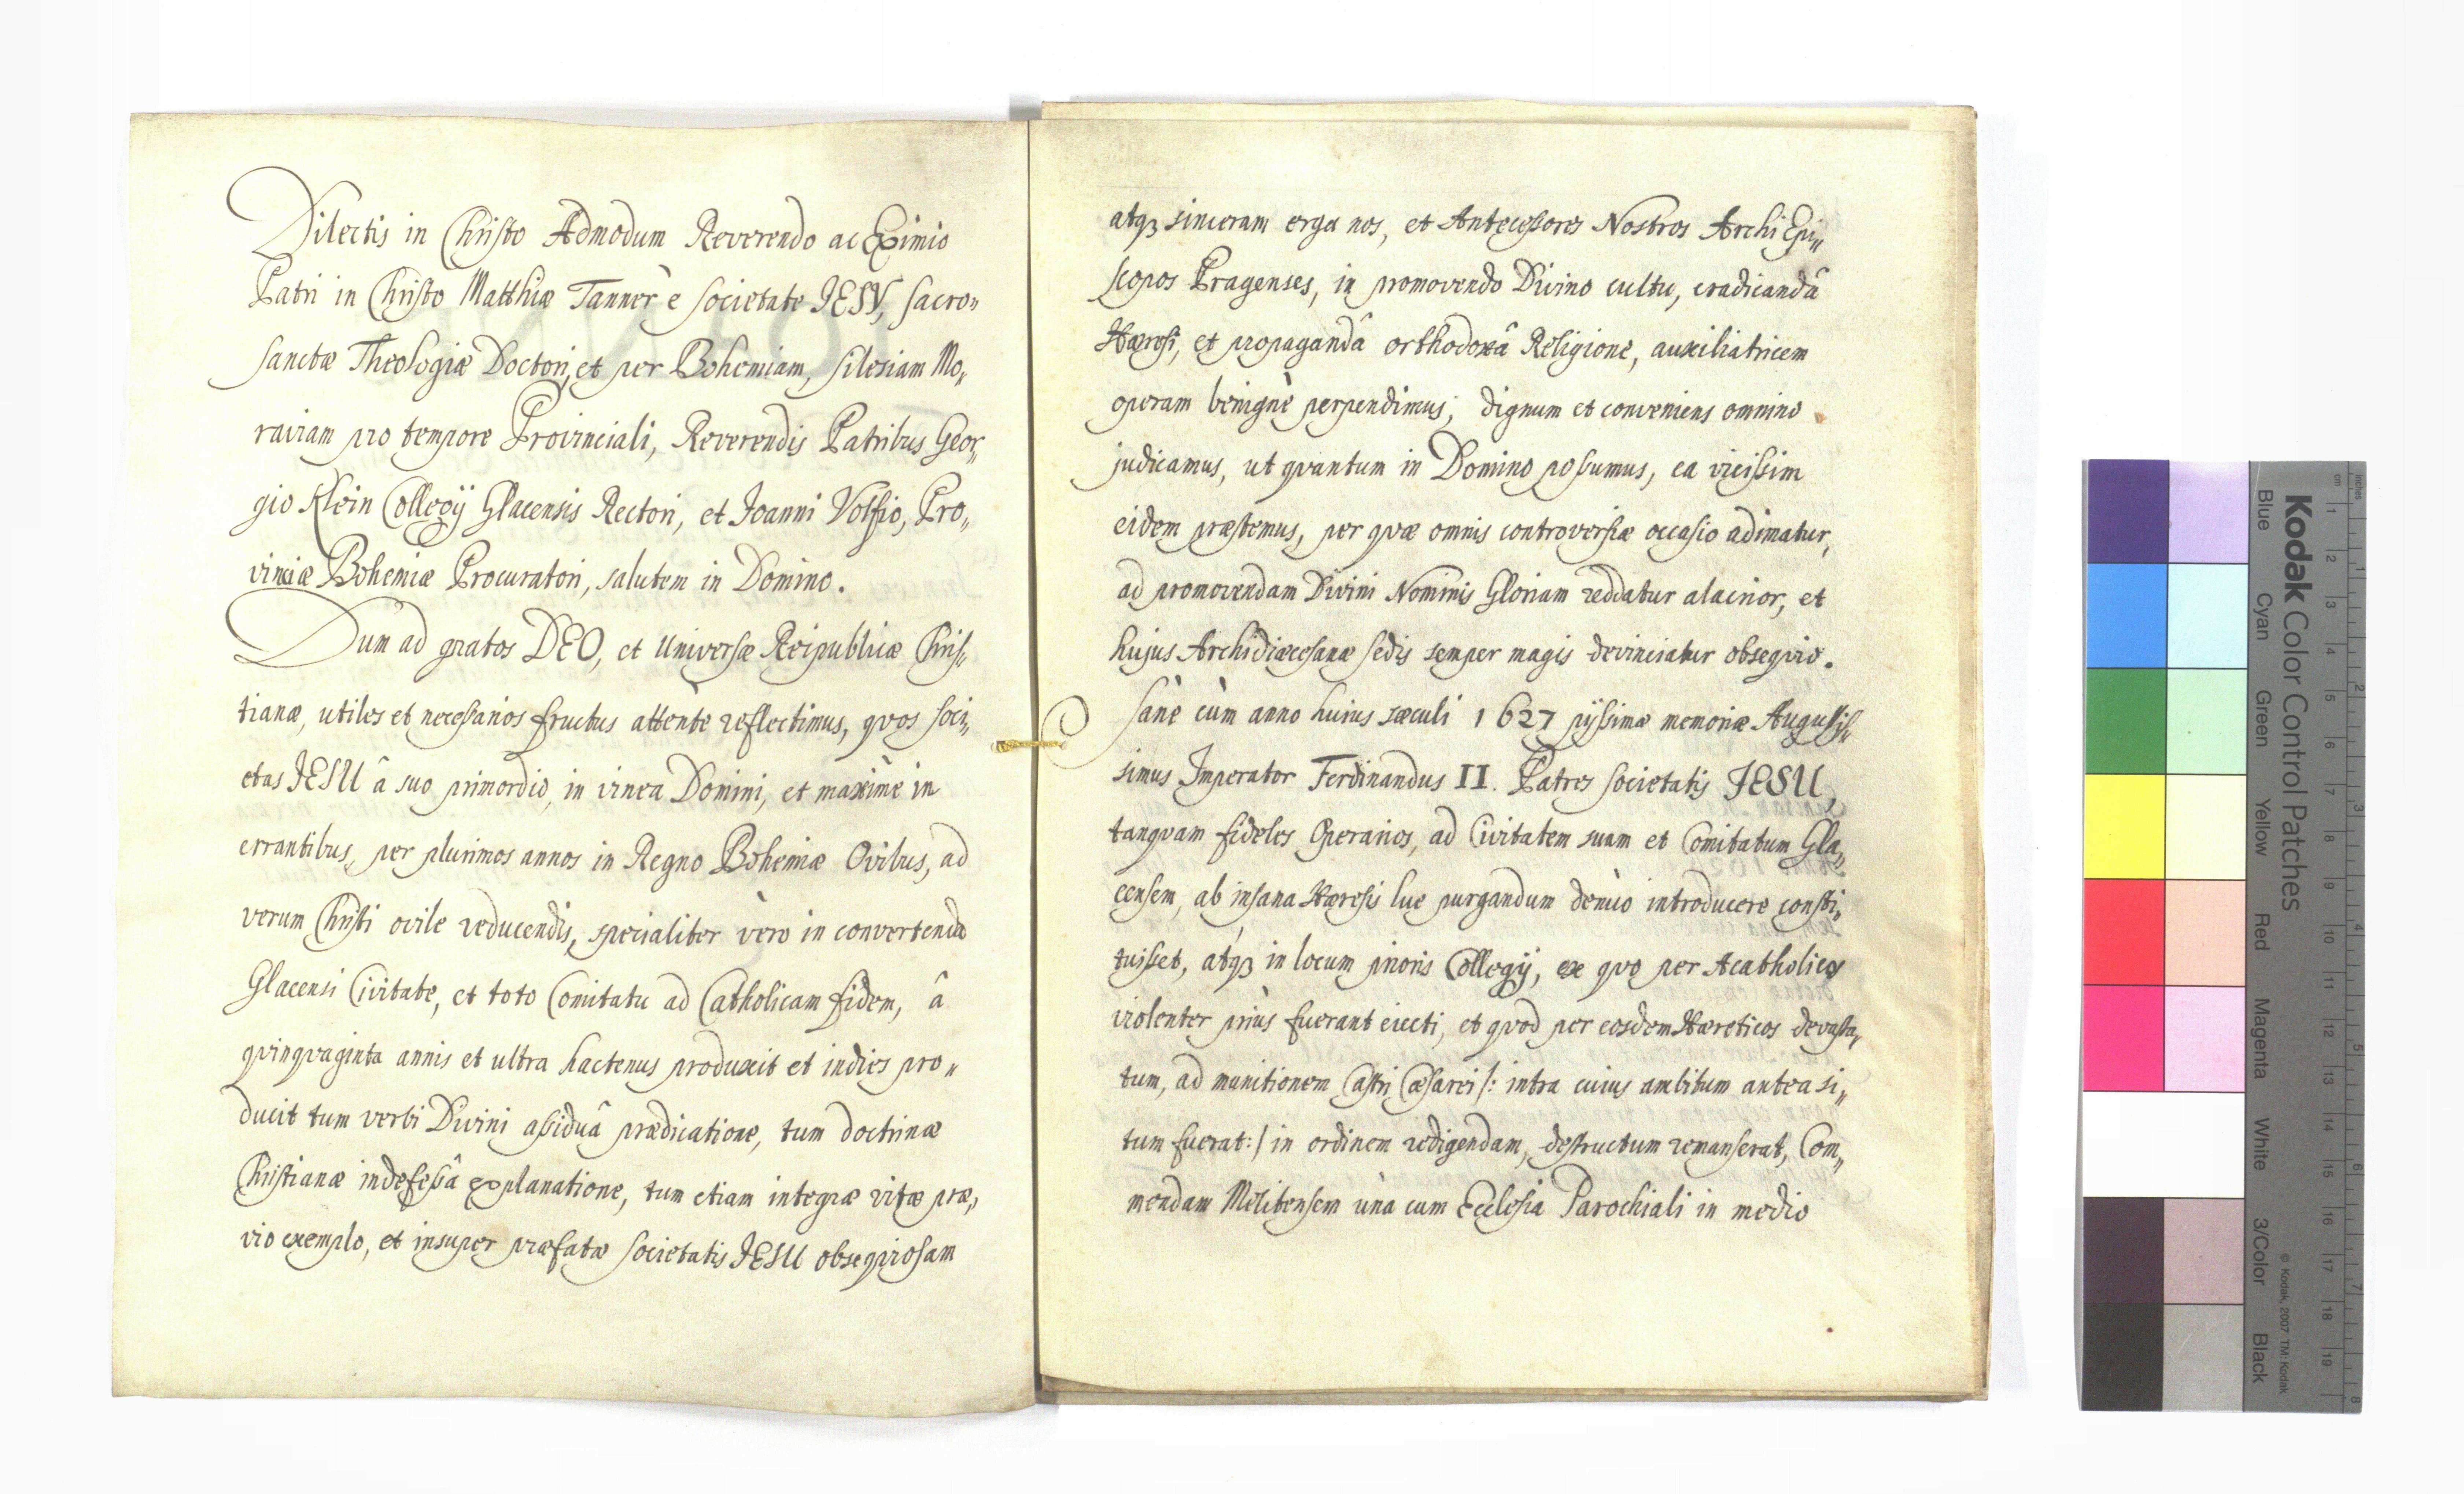 Dilectis in Christo Admodum Reverendo ac Eximio
Patri in Christo Matthiæ Tanner è Societate JESV, Sacro„
Sanctæ Theologiæ Doctori, et per Bohemiam, Silesiam Mo„
raviam pro tempore Provinciali, Reverendis Patribus Geor„
gio Klein Collegÿ Glacensis Rectori, et Joanni Volfio, Pro„
vinciæ Bohemiæ Procuratori, salutem in Domino.
Dum ad gratos DEO, et Universæ Reipublicæ Chris„
tianæ, utiles et necessarios fructus attentè reflectimus, qvos Soci„
etas JESU â suo primordio, in vinea Domini, et maximè in
errantibus, per plurimos annos in Regno Bohemiæ Ovibus, ad
verum Christi ovile reducendis, specialiter verò in convertenda
Glacensi Civitate, et toto Comitatu ad Catholicam fidem, â
qvinqvaginta annis et ultra hactenus produxit et indies pro„
ducit tum verbi Divini assiduâ prædicatione, tum doctrinæ
Christianæ indefessâ explanatione, tum etiam integræ vitæ præ„
vio exemplo, et insuper præfatæ Societatis JESU obseqviosam
atqꝫ sinceram erga nos, et Antecessores Nostros Archi Epi„
scopos Pragenses, in promovendo Divino cultu, eradicandâ
Hæresi, et propagandâ orthodoxâ Religione, auxiliatricem
operam benignè perpendimus; dignum et conveniens omnino
judicamus, ut qvantum in Domino possumus, ea vicissim
eidem præstemus, per qvæ omnis controversiæ occasio adimatur,
ad promovendam Divini Nominis Gloriam reddatur alacrior, et
hujus Archidiæcesanæ Sedis semper magis devinciatur obseqvio.
Sanè cùm anno huius sæculi 1627 pÿssimæ memoriæ Augustis„
simus Imperator Ferdinandus II. Patres Societatis JESU,
tanqvam fideles Operarios, ad Civitatem suam et Comitatum Gla„
censem, ab insana Hæresis lue purgandum denùo introducere consti„
tuisset, atqꝫ in locum prioris Collegÿ, ex qvo per Acatholicos
violenter priùs fuerant eiecti, et qvod per eosdem Hæreticos devasta„
tum, ad munitionem Castri Cæsarei /: intra cuius ambitum antea si„
tum fuerat :/ in ordinem redigendam, destructum remanserat, Com„
mendam Melitensem unà cum Ecclesia Parochiali in medio
Kodak Color Control Patches
Blue Cyan Green Yellow Red Magenta White 3/Color Black
© Kodak, 2007 TM: Kodak
inches 1 2 3 4 5 6 7 8
cm 1 2 3 4 5 6 7 8 9 10 11 12 13 14 15 16 17 18 19